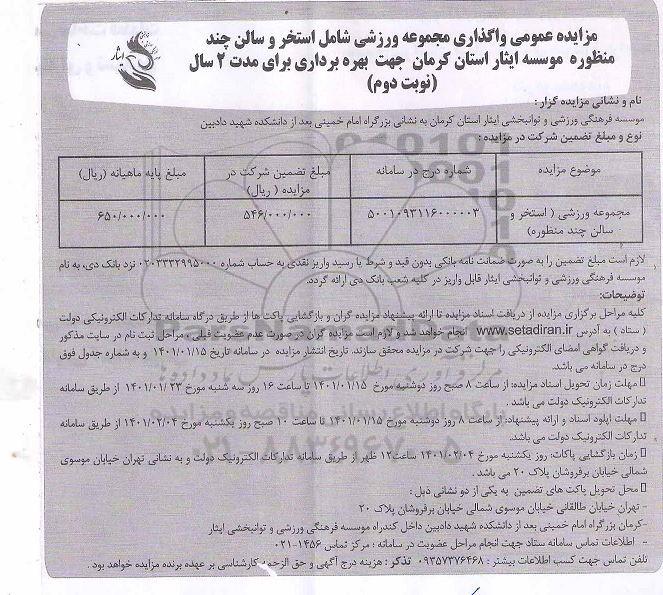 مزایده عمومی واگذاری مجموعه ورزشی شامل استخر و سالن چند
منظوره موسسه ایثار استان کرمان جهت بهره برداری برای مدت ۲ سال
(نوبت دوم)
ایثار
نام و نشانی مزایده گزار :
موسسه فرهنگی ورزشی و توانبخشی ایثار استان کرمان به نشانی بزرگراه امام خمینی بعد از دانشکده شهید دادبین
نوع و مبلغ تضمین شرکت در مزایده :
موضوع مزایده
شماره درج در سامانه
مبلغ تضمین شرکت در مزایده ( ریال)
مبلغ پایه ماهیانه (ریال)
مجموعه ورزشی ( استخر و سالن چند منظوره)
۵۰۰۱۰۹۳۱۱۶۰۰۰۰۰۳
۵۴۶/۰۰۰/۰۰۰
۶۵۰/۰۰۰/۰۰۰
لازم است مبلغ تضمین را به صورت ضمانت نامه بانکی بدون قید و شرط یا رسید واریز نقدی به حساب شماره ۰۲۰۳۳۳۲۹۹۵۰۰۰ نزد بانک دی، به نام
موسسه فرهنگی ورزشی و توانبخشی ایثار قابل واریز در کلیه شعب بانک دی ارائه گردد.
توضیحات:
کلیه مراحل برگزاری مزایده از دریافت اسناد مزایده تا ارائه پیشنهاد مزایده گران و بازگشایی پاکت ها از طریق درگاه سامانه تدارکات الکترونیکی دولت
( ستاد ) به آدرس www.setadiran.ir انجام خواهد شد و لازم است مزایده گران در صورت عدم عضویت قبلی ، مراحل ثبت نام در سایت مذکور
و دریافت گواهی امضای الکترونیکی را جهت شرکت در مزایده محقق سازند. تاریخ انتشار مزایده در سامانه تاریخ ۱۴۰۱/۰۱/۱۵ و به شماره جدول فوق
درج در سامانه می باشد.
مهلت زمان تحویل اسناد مزایده: از ساعت ۸ صبح روز دوشنبه مورخ ۱۴۰۱/۰۱/۱۵ تا ساعت ۱۶ روز سه شنبه مورخ ۲۳ /۱۴۰۱/۰۱ از طریق سامانه
تدارکات الکترونیک دولت می باشد .
مهلت اپلود اسناد و ارائه پیشنهاد: از ساعت ۸ روز دوشنبه مورخ ۱۴۰۱/۰۱/۱۵ تا ساعت ۱۰ صبح روز یکشنبه مورخ ۱۴۰۱/۰۲/۰۴ از طریق سامانه
تدارکات الکترونیک دولت می باشد.
زمان بازگشایی پاکات: روز یکشنبه مورخ ۱۴۰۱/۰۲/۰۴ ساعت۱۲ ظهر از طریق سامانه تدارکات الکترونیک دولت و به نشانی تهران خیابان موسوی
شمالی خیابان برفروشان پلاک ۲۰ می باشد .
محل تحویل پاکت های تضمین به یکی از دو نشانی ذیل :
- تهران خیابان طالقانی خیابان موسوی شمالی خیابان برفروشان پلاک ۲۰
-کرمان بزرگراه امام خمینی بعد از دانشکده شهید دادبین داخل کندراه موسسه فرهنگی ورزشی و توانبخشی ایثار
- اطلاعات تماس سامانه ستاد جهت انجام مراحل عضویت در سامانه : مرکز تماس ۱۴۵۶-۰۲۱
تلفن تماس جهت کسب اطلاعات بیشتر : ۰۹۳۵۷۳۷۶۴۶۸ تذکر : هزینه درج آگهی و حق الزحمه کارشناسی بر عهده برنده مزایده خواهد بود .